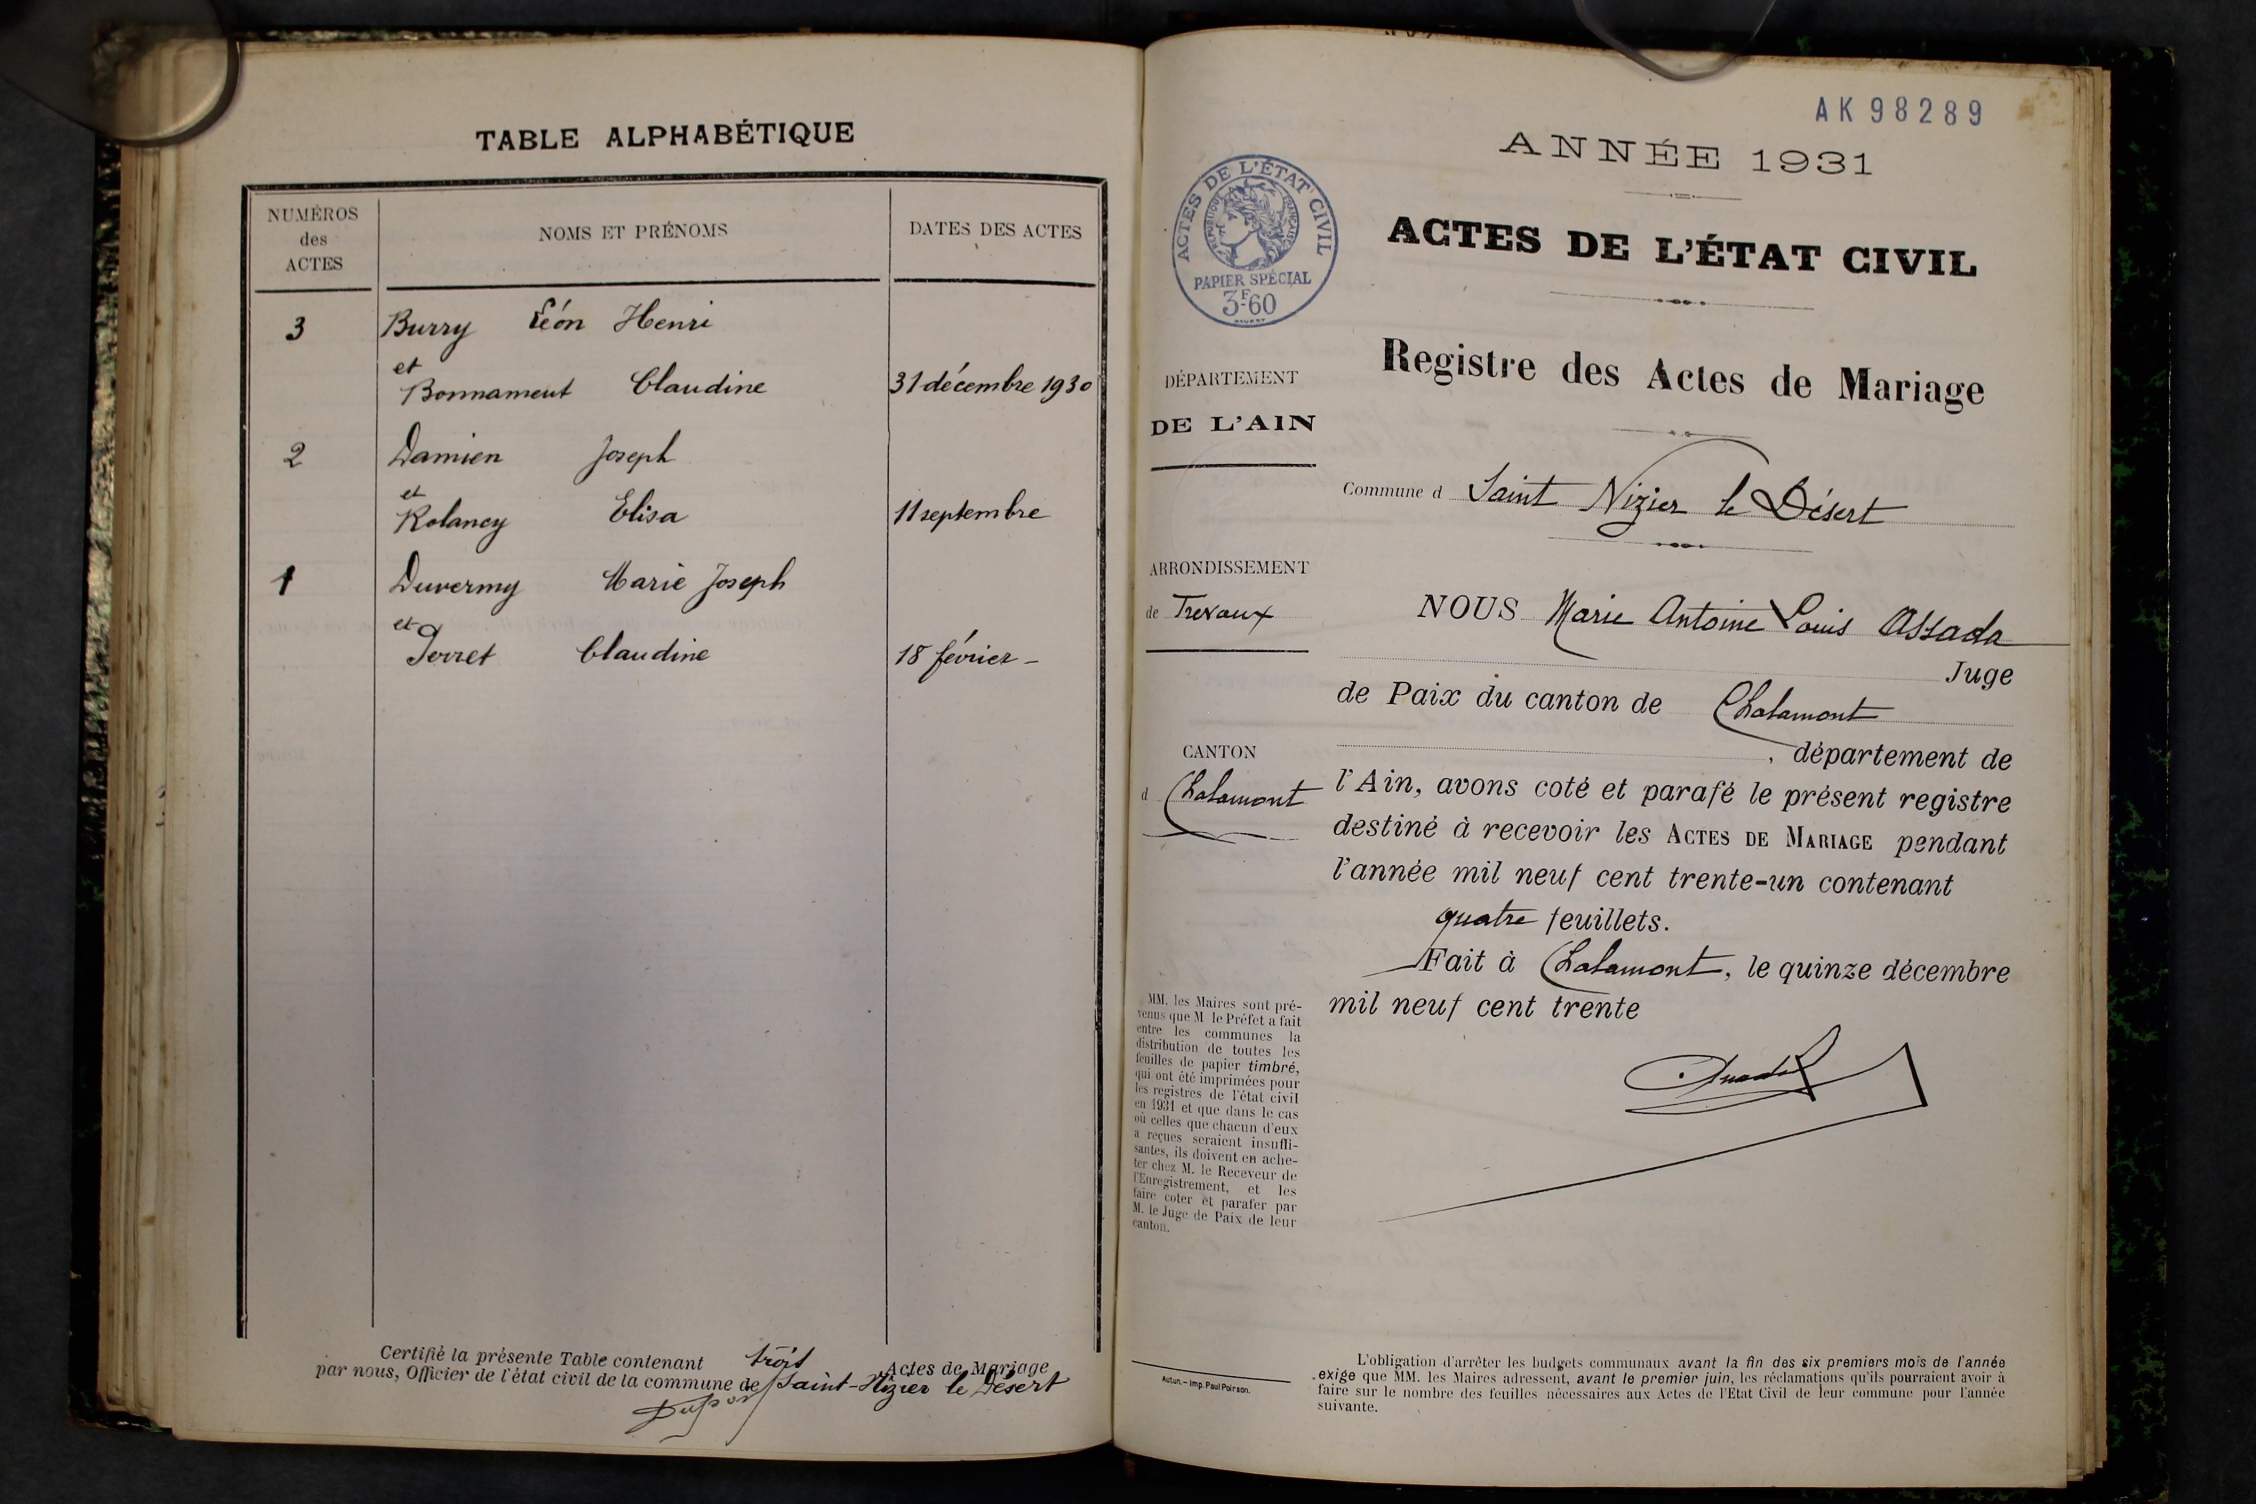 TABLE ALPHABÉTIQUE
NUMÉROS
des
ACTES
NOMS ET PRÉNOMS
DATES DES ACTES
3 Burry Léon Henri
et
Bonnament Claudine 31 décembre 1930
2 Damien Joseph
et
Rolancy Elisa 11 septembre
1 Duvermy Marie Joseph
et
Perret Claudine 18 février -
Certifié la présente Table contenant trois Actes de Mariage
par nous, Officier de l'état civil de la commune de Saint-Nizier le Désert
AK 98289
ANNÉE 1931
ACTES DE L'ÉTAT CIVIL
RÉPUBLIQUE FRANÇAISE
PAPIER SPÉCIAL
3F-60
ACTES DE L'ÉTAT CIVIL
Registre des Actes de Mariage
DÉPARTEMENT
DE L'AIN
Commune d Saint Nizier le Désert
ARRONDISSEMENT
de Trevoux
CANTON
d Chalamont
NOUS Marie Antoine Louis Assada
Juge
de Paix du canton de Chalamont
, département de
l'Ain, avons coté et parafé le présent registre
destiné à recevoir les ACTES DE MARIAGE pendant
l'année mil neuf cent trente-un contenant
quatre feuillets.
Fait à Chalamont, le quinze décembre
mil neuf cent trente
MM. les Maires sont pré-
venus que M. le Préfet a fait
entre les communes la
distribution de toutes les
feuilles de papier timbré,
qui ont été imprimées pour
les registres de l'état civil
en 1931 et que dans le cas
où celles que chacun d'eux
a reçues seraient insuffi-
santes, ils doivent en ache-
ter chez M. le Receveur de
l'Enregistrement, et les
faire coter et parafer par
M. le Juge de Paix de leur
canton.
Autun. – Imp. Paul Poirson.
L'obligation d'arrêter les budgets communaux avant la fin des six premiers mois de l'année
exige que MM. les Maires adressent, avant le premier juin, les réclamations qu'ils pourraient avoir à
faire sur le nombre des feuilles nécessaires aux Actes de l'Etat Civil de leur commune pour l'année
suivante.